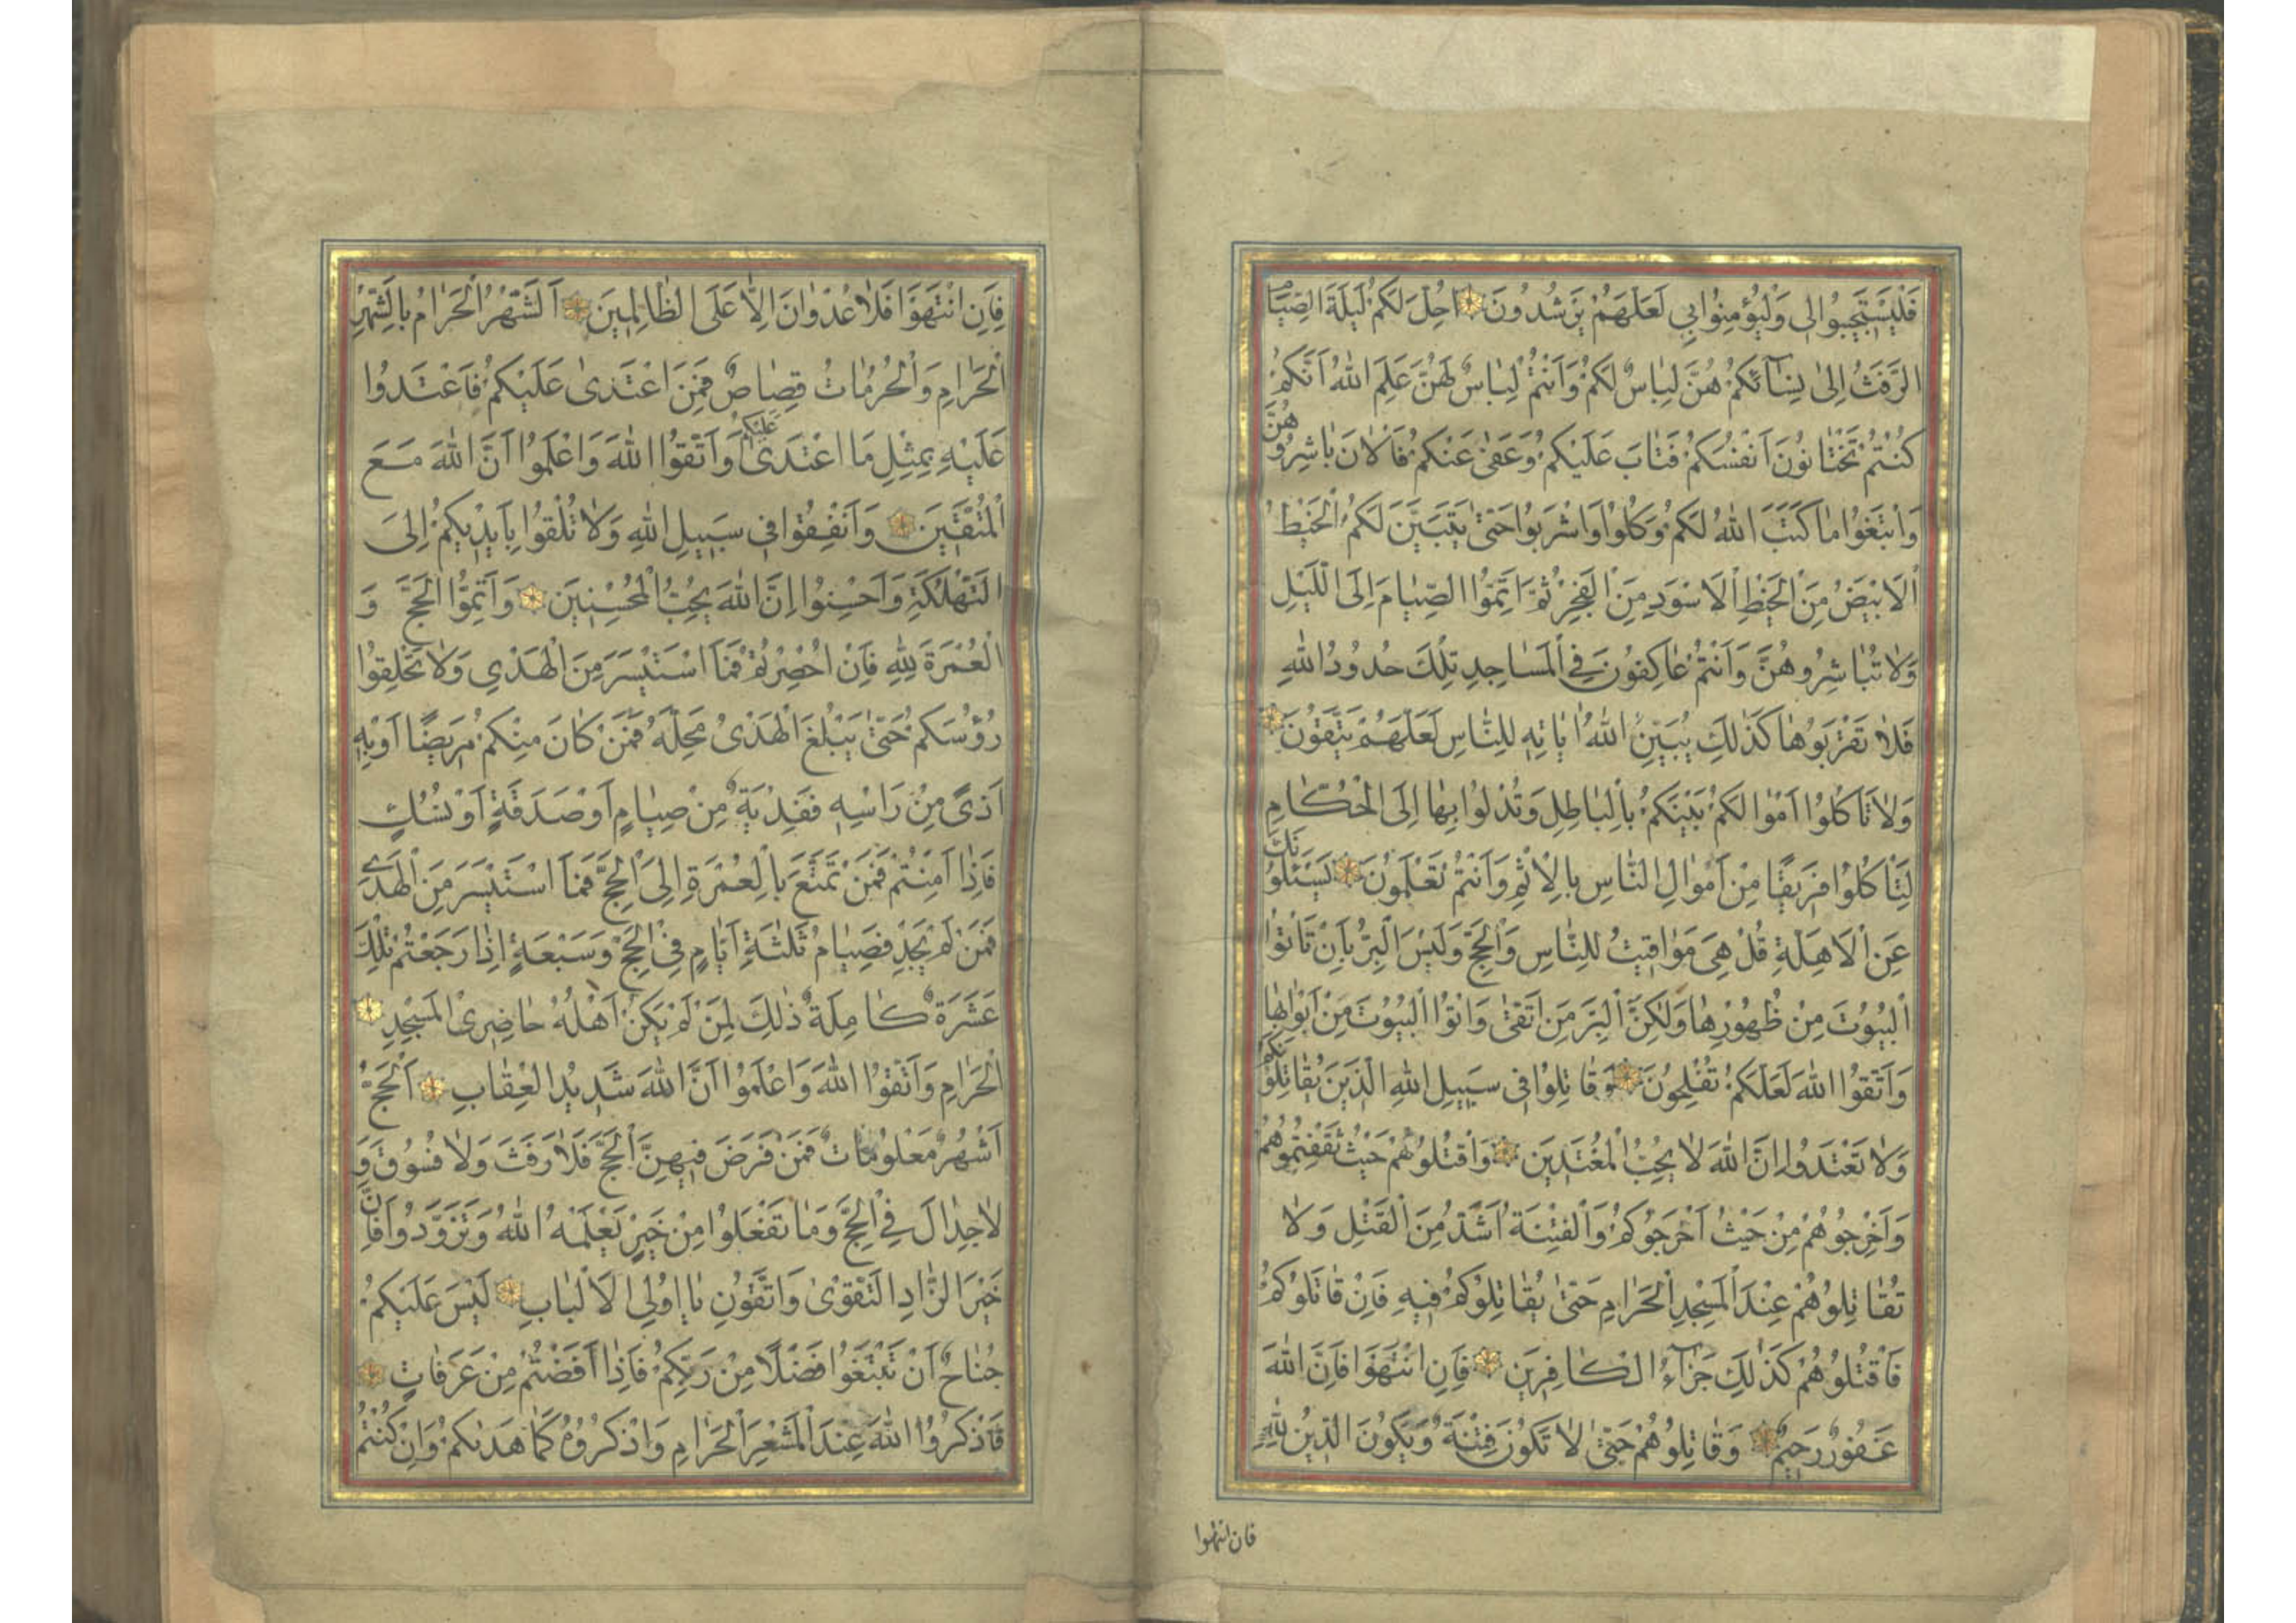 فَلْيَسْتَجِيبُوا لِي وَلْيُؤْمِنُوا بِي لَعَلَّهُمْ يَرْشُدُونَ اُحِلَّ لَكُمْ لَيْلَةَ الصِّيَامِ
الرَّفَثُ اِلىٰ نِسَآئِكُمْ هُنَّ لِبَاسٌ لَكُمْ وَاَنْتُمْ لِبَاسٌ لَهُنَّ عَلِمَ اللهُ اَنَّكُمْ
كُنْتُمْ تَخْتَانُونَ اَنْفُسَكُمْ فَتَابَ عَلَيْكُمْ وَعَفىٰ عَنْكُمْ فَالْاٰنَ بَاشِرُوهُنَّ
وَابْتَغُوا مَا كَتَبَ اللهُ لَكُمْ وَكُلُوا وَاشْرَبُوا حَتىّٰ يَتَبَيَّنَ لَكُمُ الْخَيْطُ
الْاَبْيَضُ مِنَ الْخَيْطِ الْاَسْوَدِ مِنَ الْفَجْرِ ثُمَّ اَتِمُّوا الصِّيَامَ اِلَى اللَّيْلِ
وَلَا تُبَاشِرُوهُنَّ وَاَنْتُمْ عَاكِفُونَ فِي الْمَسَاجِدِ تِلْكَ حُدُودُ اللهِ
فَلَا تَقْرَبُوهَا كَذٰلِكَ يُبَيِّنُ اللهُ اٰيَاتِهِ لِلنَّاسِ لَعَلَّهُمْ يَتَّقُونَ
وَلَا تَأْكُلُوا اَمْوَالَكُمْ بَيْنَكُمْ بِالْبَاطِلِ وَتُدْلُوا بِهَا اِلَى الْحُكَّامِ
لِتَأْكُلُوا فَرِيقًا مِنْ اَمْوَالِ النَّاسِ بِالْاِثْمِ وَاَنْتُمْ تَعْلَمُونَ يَسْئَلُونَكَ
عَنِ الْاَهِلَّةِ قُلْ هِيَ مَوَاقِيتُ لِلنَّاسِ وَالْحَجِّ وَلَيْسَ الْبِرُّ بِاَنْ تَأْتُوا
الْبُيُوتَ مِنْ ظُهُورِهَا وَلٰكِنَّ الْبِرَّ مَنِ اتَّقىٰ وَاْتُوا الْبُيُوتَ مِنْ اَبْوَابِهَا
وَاتَّقُوا اللهَ لَعَلَّكُمْ تُفْلِحُونَ وَقَاتِلُوا فِي سَبِيلِ اللهِ الَّذِينَ يُقَاتِلُونَكُمْ
وَلَا تَعْتَدُوا اِنَّ اللهَ لَا يُحِبُّ الْمُعْتَدِينَ وَاقْتُلُوهُمْ حَيْثُ ثَقِفْتُمُوهُمْ
وَاَخْرِجُوهُمْ مِنْ حَيْثُ اَخْرَجُوكُمْ وَالْفِتْنَةُ اَشَدُّ مِنَ الْقَتْلِ وَلَا
تُقَاتِلُوهُمْ عِنْدَ الْمَسْجِدِ الْحَرَامِ حَتىّٰ يُقَاتِلُوكُمْ فِيهِ فَاِنْ قَاتَلُوكُمْ
فَاقْتُلُوهُمْ كَذٰلِكَ جَزَآءُ الْكَافِرِينَ فَاِنِ انْتَهَوْا فَاِنَّ اللهَ
غَفُورٌ رَحِيمٌ وَقَاتِلُوهُمْ حَتىّٰ لَا تَكُونَ فِتْنَةٌ وَيَكُونَ الدِّينُ لِلّٰهِ
فان انتهوا
فَاِنِ انْتَهَوْا فَلَا عُدْوَانَ اِلَّا عَلَى الظَّالِمِينَ اَلشَّهْرُ الْحَرَامُ بِالشَّهْرِ
الْحَرَامِ وَالْحُرُمَاتُ قِصَاصٌ فَمَنِ اعْتَدىٰ عَلَيْكُمْ فَاعْتَدُوا
عَلَيْهِ بِمِثْلِ مَا اعْتَدىٰ عَلَيْكُمْ وَاتَّقُوا اللهَ وَاعْلَمُوا اَنَّ اللهَ مَعَ
الْمُتَّقِينَ وَاَنْفِقُوا فِي سَبِيلِ اللهِ وَلَا تُلْقُوا بِاَيْدِيكُمْ اِلَى
التَّهْلُكَةِ وَاَحْسِنُوا اِنَّ اللهَ يُحِبُّ الْمُحْسِنِينَ وَاَتِمُّوا الْحَجَّ وَ
الْعُمْرَةَ لِلّٰهِ فَاِنْ اُحْصِرْتُمْ فَمَا اسْتَيْسَرَ مِنَ الْهَدْيِ وَلَا تَحْلِقُوا
رُؤُسَكُمْ حَتىّٰ يَبْلُغَ الْهَدْيُ مَحِلَّهُ فَمَنْ كَانَ مِنْكُمْ مَرِيضًا اَوْ بِهِ
اَذىً مِنْ رَاْسِهِ فَفِدْيَةٌ مِنْ صِيَامٍ اَوْ صَدَقَةٍ اَوْ نُسُكٍ
فَاِذَا اَمِنْتُمْ فَمَنْ تَمَتَّعَ بِالْعُمْرَةِ اِلَى الْحَجِّ فَمَا اسْتَيْسَرَ مِنَ الْهَدْيِ
فَمَنْ لَمْ يَجِدْ فَصِيَامُ ثَلٰثَةِ اَيَّامٍ فِي الْحَجِّ وَسَبْعَةٍ اِذَا رَجَعْتُمْ تِلْكَ
عَشَرَةٌ كَامِلَةٌ ذٰلِكَ لِمَنْ لَمْ يَكُنْ اَهْلُهُ حَاضِرِي الْمَسْجِدِ
الْحَرَامِ وَاتَّقُوا اللهَ وَاعْلَمُوا اَنَّ اللهَ شَدِيدُ الْعِقَابِ اَلْحَجُّ
اَشْهُرٌ مَعْلُومَاتٌ فَمَنْ فَرَضَ فِيهِنَّ الْحَجَّ فَلَا رَفَثَ وَلَا فُسُوقَ وَ
لَا جِدَالَ فِي الْحَجِّ وَمَا تَفْعَلُوا مِنْ خَيْرٍ يَعْلَمْهُ اللهُ وَتَزَوَّدُوا فَاِنَّ
خَيْرَ الزَّادِ التَّقْوىٰ وَاتَّقُونِ يَا اُولِي الْاَلْبَابِ لَيْسَ عَلَيْكُمْ
جُنَاحٌ اَنْ تَبْتَغُوا فَضْلًا مِنْ رَبِّكُمْ فَاِذَا اَفَضْتُمْ مِنْ عَرَفَاتٍ
فَاذْكُرُوا اللهَ عِنْدَ الْمَشْعَرِ الْحَرَامِ وَاذْكُرُوهُ كَمَا هَدٰيكُمْ وَاِنْ كُنْتُمْ